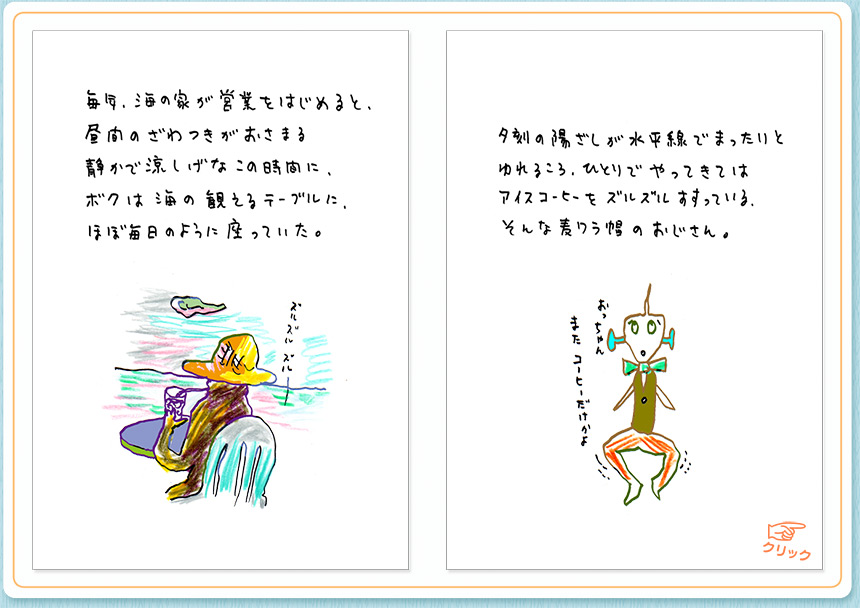 毎年、海の家が営業をはじめると、
昼間のざわつきがおさまる
静かで涼しげなこの時間に、
ボクは海の観えるテーブルに、
ほぼ毎日のように座っていた。
ズルズルズル
夕刻の陽ざしが水平線でまったりと
ゆれるころ、ひとりでやってきては
アイスコーヒーをズルズルすすっている、
そんな麦ワラ帽のおじさん。
おっちゃん
またコーヒーだけかよ
クリック